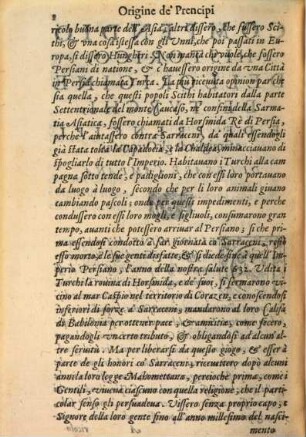 Origine de' Prencipi
ricolo buona parte dell'Asia, altri dissero, che fussero Sci-
thi, & vna cosa istessa con gli Vnni, che poi passati in Eu-
ropa si dissero Hungheri. Non manca chi vuole che fussero
Persiani di natione, & c'haussero origine da vna Città
in Persia chiamata Turca. Ma più riceuuta opinion par che
sia quella, che questi popoli Scithi habitatori dalla parte
Settentrionale del monte Caucaso, ne' confini della Sarma-
tia Asiatica, fossero chiamati da Horsimida Rè di Persia,
perche l'aiutassero contra Sarraceni, da' quali essendogli
già stata tolta la & la Chaldea, minacciauano di
spogliarlo di tutto l'Imperio. Habitauano i Turchi alla cam
pagna sotto tende, e padiglioni, che con essi loro portauano
da luogo à luogo, secondo che per li loro animali giuano
cambiando pascoli; onde per questi impedimenti, e perche
condussero con essi loro mogli, e figliuoli, consumarono gran
tempo, auanti che potessero arriuar al Persiano; sì che pri-
ma essendosi condotto à far giornata co' Sarraceni, restò
esso morto, e le sue genti disfatte, & si diede fine à quell'Im
perio Persiano, l'anno della nostra salute 632. Vdita i
Turchi la rouina di Horsimida, e de' suoi, si fermarono vici-
no al mar Caspio nel territorio di Corazen, e conoscendosi
inferiori di forze à Sarraceni, mandarono al loro Califa
di Babilonia per ottener pace, & amicitia, come fecero,
pagandogli vn certo tributo, & obligandosi ad alcun'al-
tre seruitù. Ma per liberarsi da questo giogo, & esser à
parte de gli honori co' Sarraceni, riceuettero dopo alcuni
anni la loro legge Mahomettana, percioche prima, come i
Gentili, viueua ciascuno con quella religione che il parti-
colar senso gli persuadeua. Vissero senza proprio capo, e
Signore della loro gente fino all'anno millesimo del nasci-
mento